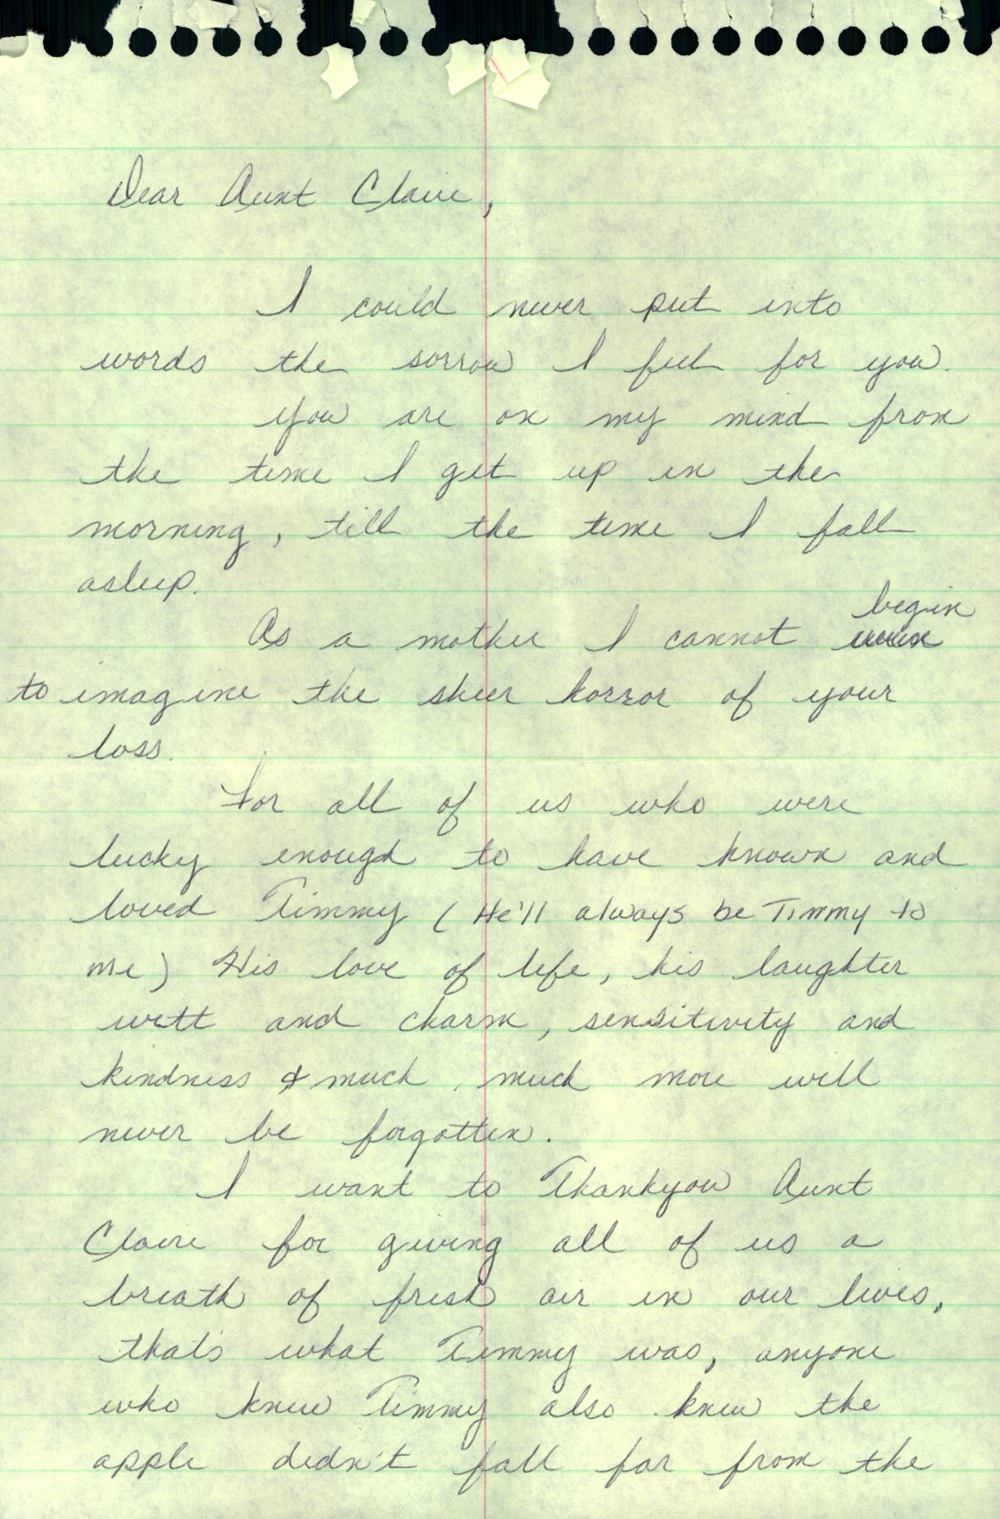 Dear Aunt Claire,
I could never put into
words the sorrow I feel for you.
You are on my mind from
the time I get up in the
morning, till the time I fall
asleep.
As a mother I cannot begin
to imagine the sheer horror of your
loss.
For all of us who were
lucky enough to have known and
loved Timmy (He'll always be Timmy to
me) His love of life, his laughter
witt and charm, sensitivity and
kindness & much, much more will
never be forgotten.
I want to Thankyou Aunt
Claire for giving all of us a
breath of fresh air in our lives,
that's what Timmy was, anyone
who knew Timmy also knew the
apple didn't fall far from the